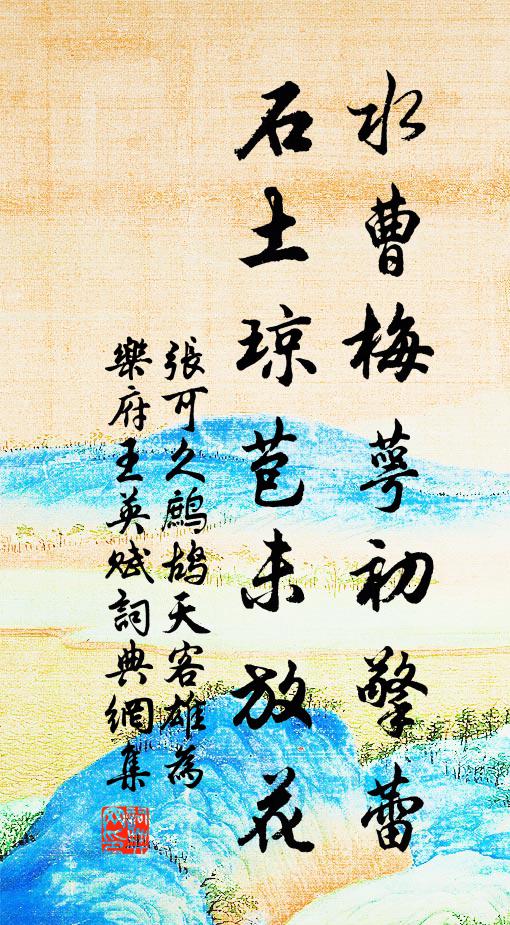 水曹梅萼初擎蕾
石土琼苞未放花
張可久鷓鴣天客雄為
樂府王英赋詞典網集